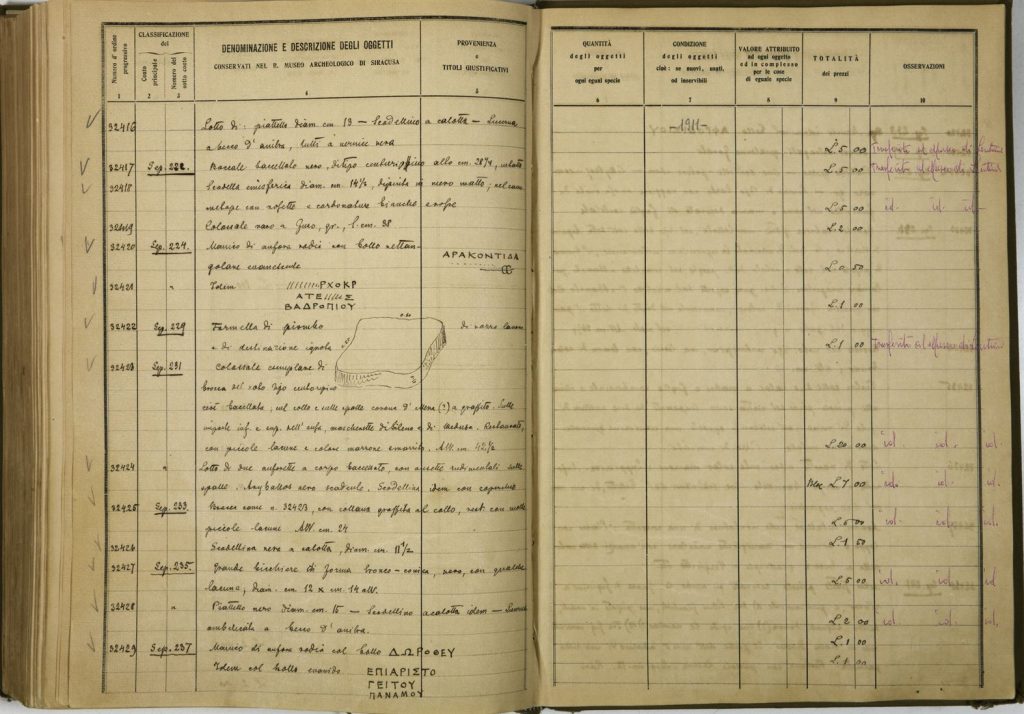 Numero d'ordine progressivo
CLASSIFICAZIONE del
Conto principale
Numero del sotto conto
DENOMINAZIONE E DESCRIZIONE DEGLI OGGETTI
CONSERVATI NEL R. MUSEO ARCHEOLOGICO DI SIRACUSA
PROVENIENZA
e
TITOLI GIUSTIFICATIVI
1 2 3 4 5
32416 Lotto di: piattello diam. cm 13 – Scodellino a calotta – Lucerna
a becco d'aniba, tutti a vernice nera
32417 Sep. 222. Boccale baccellato nero, di tipo alto cm. 28
32418 Scodella emisferica diam. cm. 14½, dipinta in nero matto, nel
metope con rosette e bianche e rosse
32419 Colossale vaso a gr., l. cm. 38
32420 Sep. 224. Manico di anfora rodia con bollo rettan-
golare evanescente ΔΡΑΚΟΝΤΙΔΑ
32421 " Idem ΡΧΟΚΡ
ΑΤΕ Σ
ΒΑΔΡΟΠΙΟΥ
32422 Sep. 229 Formella di piombo
e di destinazione ignota
32423 Sep. 231 Colossale di
brocca del tipo
baccellata; sul collo e sulle spalle corona d' (?) a graffito. Sulle
inf. e sup. dell'ansa, mascherette di Sileno e di Medusa. Restaurato,
con piccole lacune e colore marrone Alt. cm. 42½
32424 " Lotto di due anforette a corpo baccellato, con ansette rudimentali sulle
spalle. Aryballos nero. Scodellina idem con coperchio
32425 Sep. 233. Brocca come n. 32423, con collana graffita al collo, rest. con molte
piccole lacune Alt. cm. 24
32426 Scodellina nera a calotta, diam. cm. 11½
32427 Sep. 235. Grande bicchiere di forma tronco-conica, nero, con qualche
lacuna, diam. cm 12 x cm. 14 alt.
32428 " Piattello nero diam. cm. 15 – Scodellino a calotta idem – Lucerna
ombelicata a becco d'aniba.
32429 Sep. 237 Manico di anfora rodia col bollo ΔΩΡΟΘΕΥ
Idem col bollo ΕΠΙΑΡΙΣΤΟ
ΓΕΙΤΟΥ
ΠΑΝΑΜΟΥ
QUANTITÀ
degli oggetti
per
ogni egual specie
CONDIZIONE
degli oggetti
cioè: se nuovi, usati,
od inservibili
VALORE ATTRIBUITO
ad ogni oggetto
od in complesso
per le cose
di eguale specie
TOTALITÀ
dei prezzi
OSSERVAZIONI
6 7 8 9 10
-1911-
L. 5 00
L. 5 00
L. 5 00 id. id. id.
L. 2 00
L. 0 50
L. 1 00
L. 1 00
L. 20 00 id. id. id.
L. 7 00 id. id. id.
L. 5 00 id. id. id.
L. 1 50
L. 5 00 id. id. id
L. 2 00 id. id. id.
L. 1 00
L. 1 00